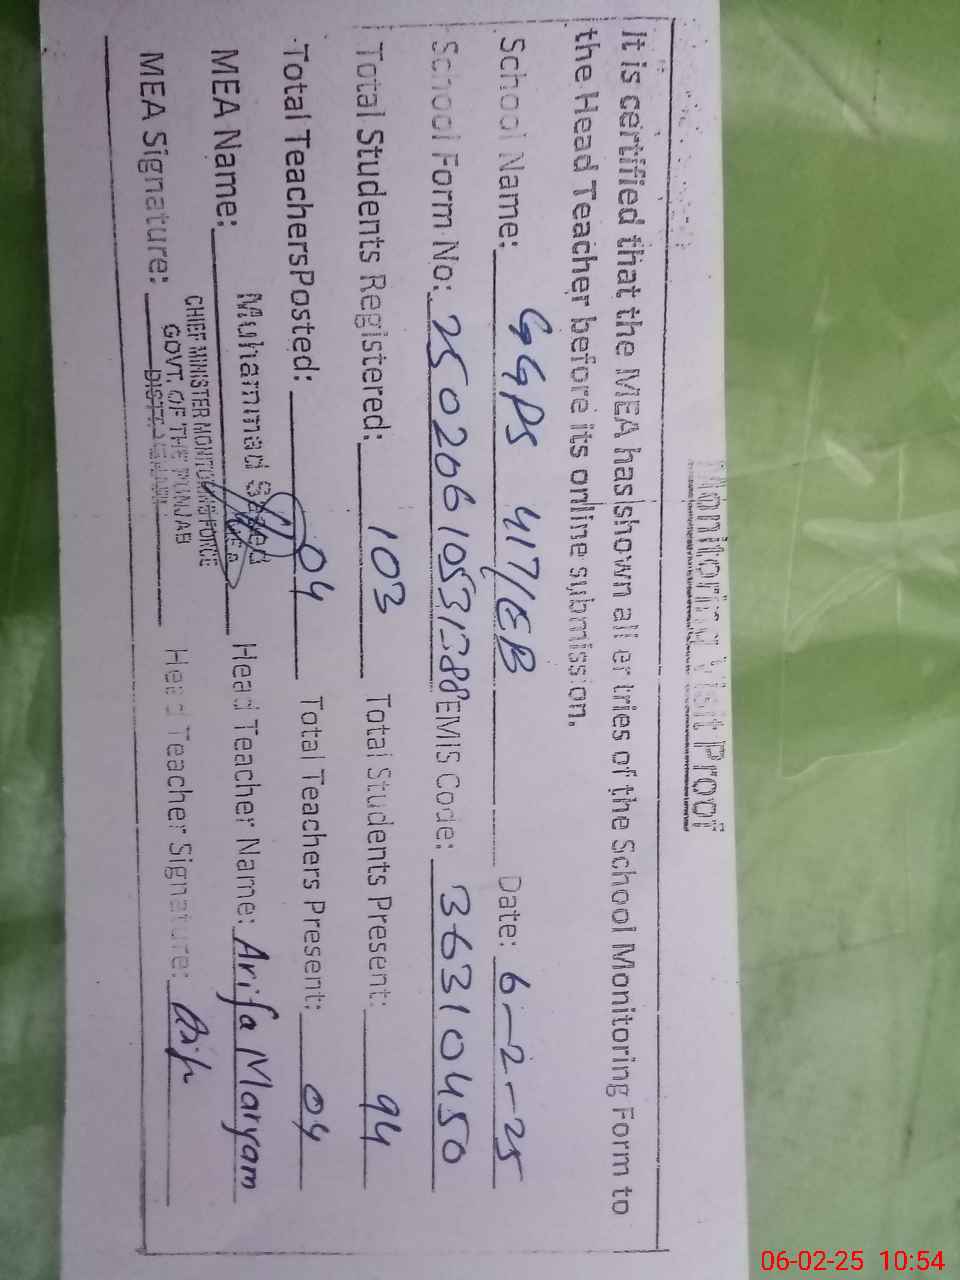 Monitoring Visit Proof
It is certified that the MEA has shown all entries of the School Monitoring Form to
the Head Teacher before its online submission.
School Name: GGPS 417/EB Date: 6-2-25
School Form No: EMIS Code: 36310450
Total Students Registered: 103 Total Students Present: 94
Total TeachersPosted: 04 Total Teachers Present: 04
MEA Name: Muhammad Saeed Head Teacher Name: Arifa Maryam
MEA
CHIEF MINISTER MONITORING FORCE
GOVT. OF THE PUNJAB
MEA Signature: Head Teacher Signature:
06-02-25 10:54